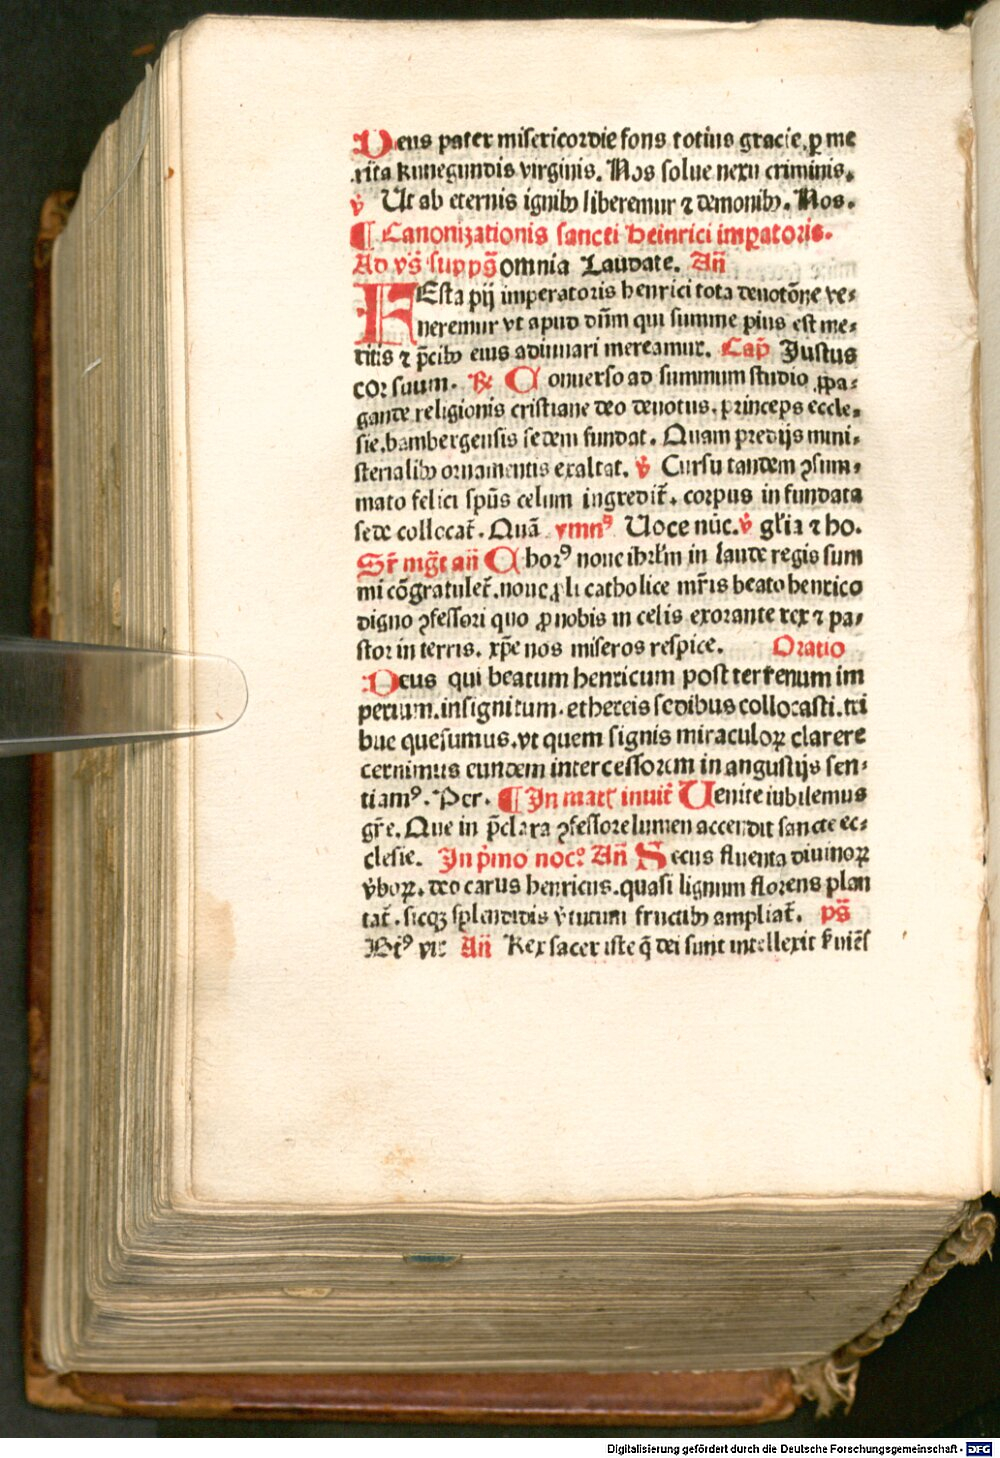 Deus pater misericordie fons totius gracie. ꝑ me
rita kunegundis virginis. Nos solue nexu criminis.
v̇ Ut ab eternis ignibꝫ liberemur ⁊ demonibꝫ. Nos.
¶ Canonizationis sancti heinrici imꝑatoris.
Ad vs̄ supꝑ ps̄ omnia Laudate. An̄
FEsta pij imperatoris henrici tota deuotōne ve⸗
neremur vt apud dn̄m qui summe pius est me⸗
ritis ⁊ p̄cibꝫ eius adiuuari mereamur. Cap̄ Justus
cor suum. ℟ Conuerso ad summum studio ꝓpa⸗
gande religionis cristiane deo deuotus. princeps eccle⸗
sie. bambergensis sedem fundat. Quam predijs mini⸗
sterialibꝫ ornamentis exaltat. v̇ Cursu tandem ꝯsum⸗
mato felici sp̄us celum ingredit̄. corpus in fundata
sede collocat̄. Quā ymnꝰ Uoce nūc. v̇ gl̄ia ⁊ ho.
Sr̄ mg̅t an̄ Chorꝰ noue ihrl̄m in laude regis sum
mi cōgratulet̄. noue ꝓli catholice mr̄is beato henrico
digno ꝯfessori quo ꝓ nobis in celis exorante rex ⁊ pa⸗
stor in terris. xp̄e nos miseros respice. Oratio
Deus qui beatum henricum post terrenum im
perium. insignitum. ethereis sedibus collocasti. tri
bue quesumus. vt quem signis miraculoꝝ clarere
cernimus eundem intercessorem in angustijs sen⸗
tiamꝰ. Per. ¶ In matt̄ inuit̄ Uenite iubilemus
gr̄e. Que in p̄clara ꝯfessore lumen accendit sancte ec⸗
clesie. In p̄mo nocꝰ An̄ Secus fluenta diuinoꝝ
v̄boꝝ. deo carus henricus. quasi lignum florens plan
tat̄. sicqꝫ splendidis v̄tutum fructibꝫ ampliat̄. ps̄
Btꝰ vir An̄ Rex sacer iste q̄ dei sunt intellexit